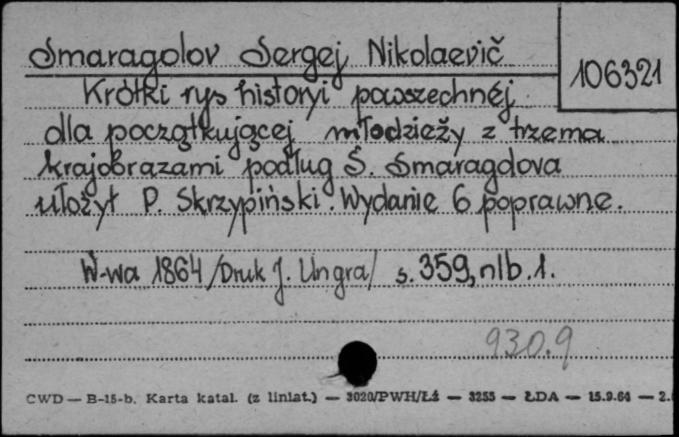 Smaragdov Sergej Nikolaevič
106321
Krótki rys historyi powszechnéj
dla początkującej młodzieży z trzema
krajobrazami podług S. Smaragdova
ułożył P. Skrzypiński. Wydanie 6 poprawne.
W-wa 1864 /Druk J. Ungra/ s. 359, nlb. 1.
930.9
CWD — B-15-b. Karta katal. (z liniat.) — 3020/PWH/Łź — 3255 — ŁDA — 15.9.64 — 2.